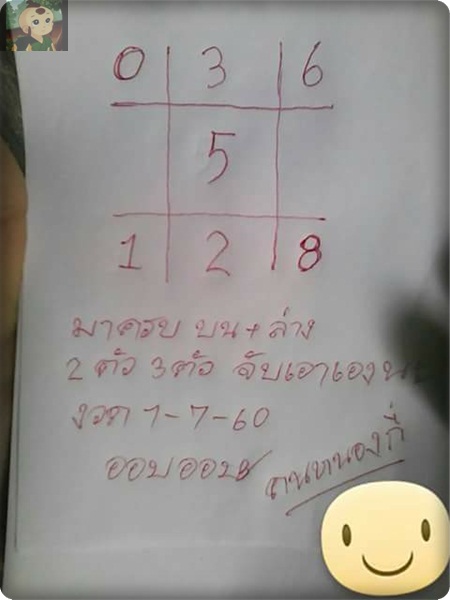 0 3 6
5
1 2 8
มาครบ บน+ล่าง
2 ตัว 3 ตัว จับเอาเอง
งวด 1-7-60
ออบออบ
ฅนหนองกี่